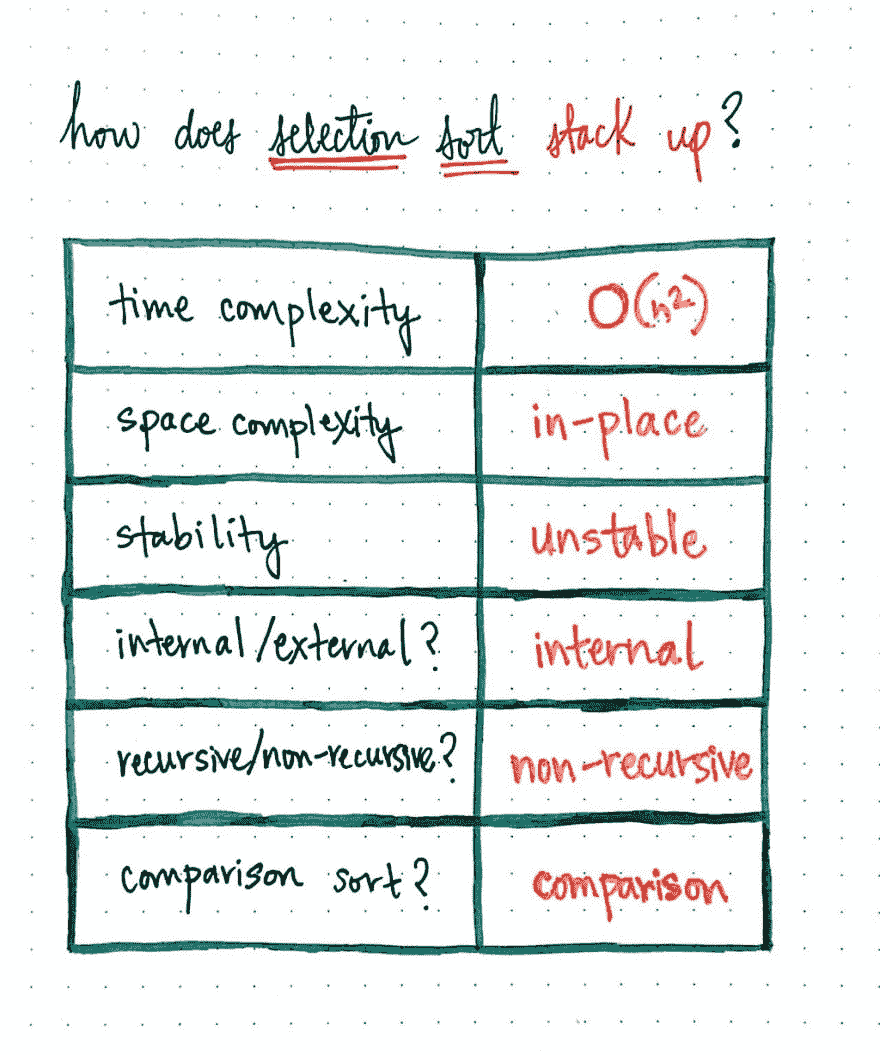 how does selection sort stack up?
time complexity O(n²)
space complexity in-place
stability unstable
internal/external? internal
recursive/non-recursive? non-recursive
comparison sort? comparison